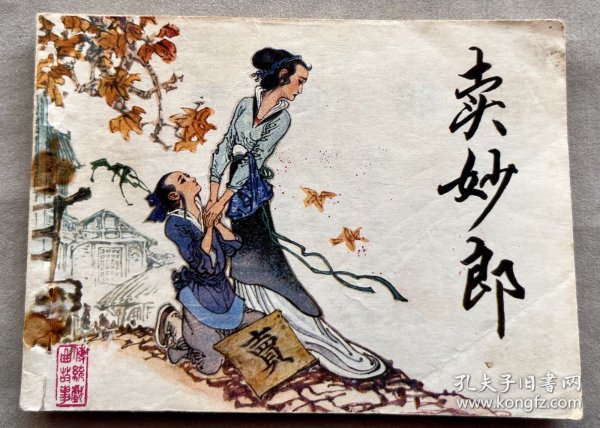 卖妙郎
賣
传统戏
曲故事
孔夫子旧书网
www.kongfz.com